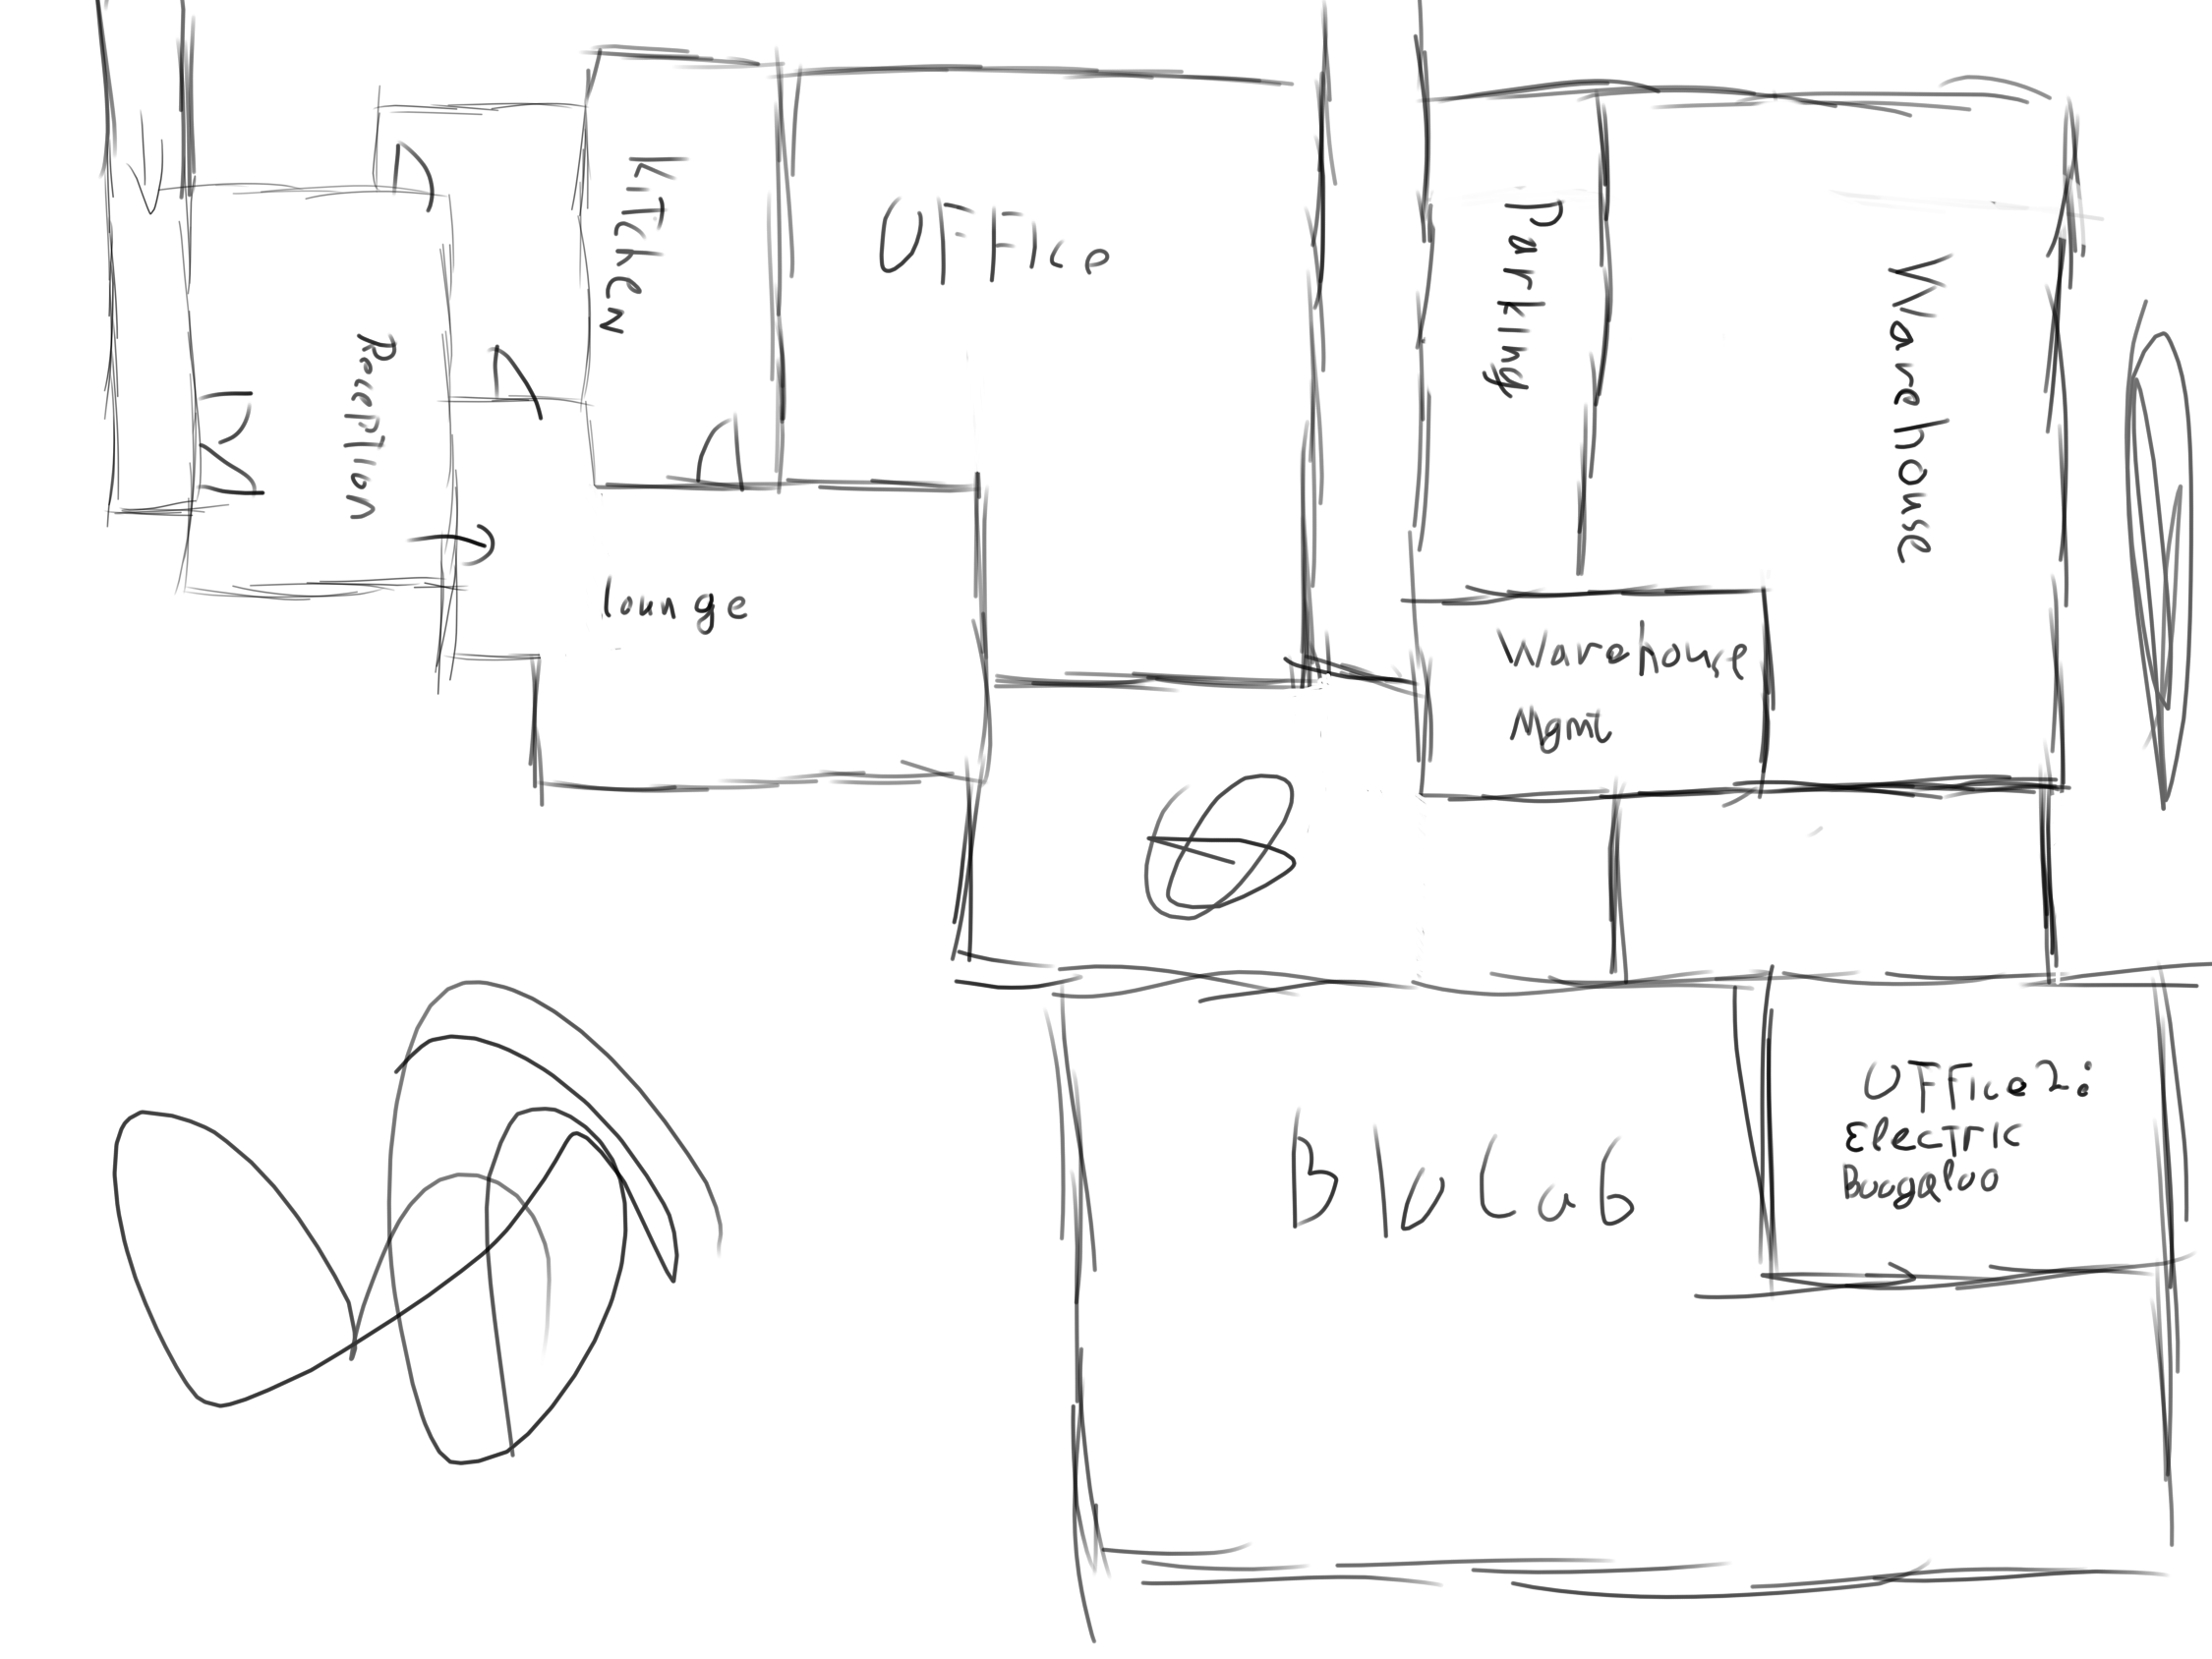 Reception
Kitchen
Office
lounge
Parking
Warehouse
Warehouse
Mgmt
Bio Lab
Office 2:
Electric
Boogaloo